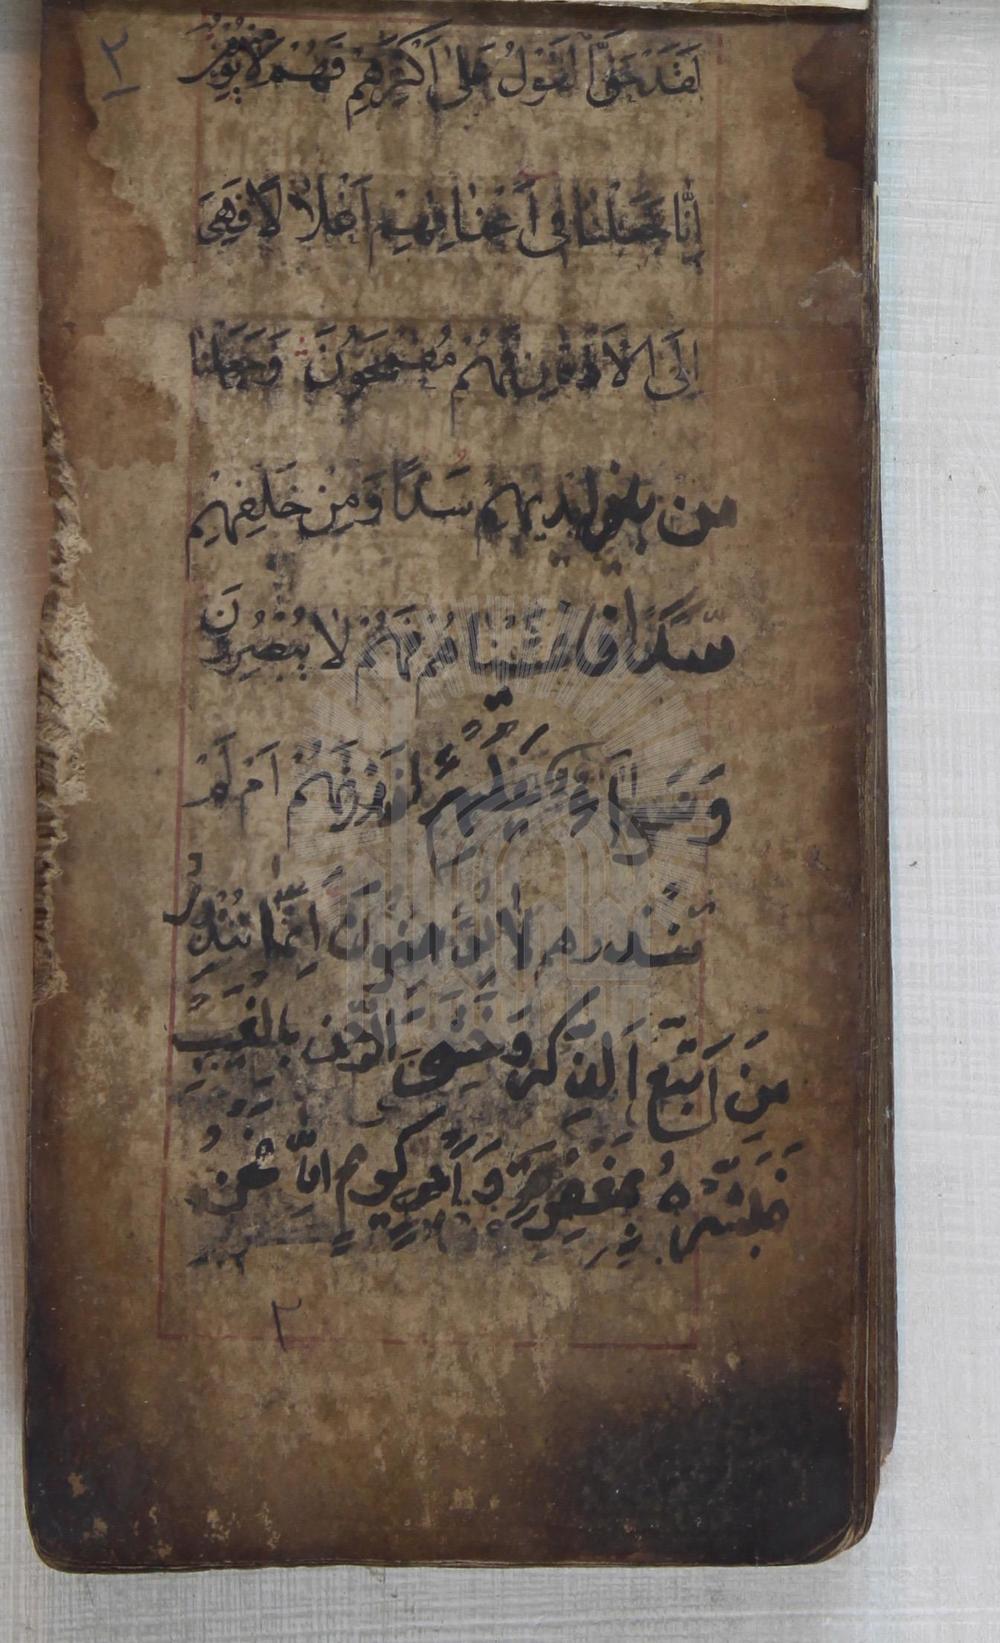 ٢
لَقَدْ حَقَّ الْقَوْلُ عَلٰى اَكْثَرِهِمْ فَهُمْ لَا يُؤْمِنُونَ
اِنَّا جَعَلْنَا فِى اَعْنَاقِهِمْ اَغْلَالًا فَهِىَ
اِلَى الْاَذْقَانِ فَهُمْ مُقْمَحُونَ وَجَعَلْنَا
مِنْ بَيْنِ اَيْدِيهِمْ سَدًّا وَمِنْ خَلْفِهِمْ
سَدًّا فَاَغْشَيْنَاهُمْ فَهُمْ لَا يُبْصِرُونَ
وَسَوَآءٌ عَلَيْهِمْ ءَاَنْذَرْتَهُمْ اَمْ لَمْ
تُنْذِرْهُمْ لَا يُؤْمِنُونَ اِنَّمَا تُنْذِرُ
مَنِ اتَّبَعَ الذِّكْرَ وَخَشِىَ الرَّحْمٰنَ بِالْغَيْبِ
فَبَشِّرْهُ بِمَغْفِرَةٍ وَاَجْرٍ كَرِيمٍ اِنَّا نَحْنُ
٢